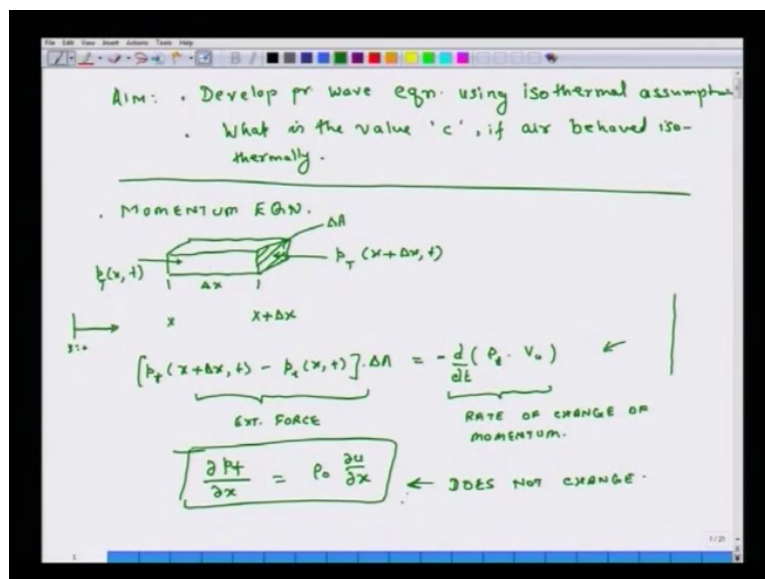 File Edit View Insert Actions Tools Help
AIM: . Develop pr wave eqn. using isothermal assumption
. What is the value 'c', if air behaved iso-
thermally.
. MOMENTUM EQN.
ΔA
p_T(x,t)
p_T (x+Δx,t)
Δx
x
x+Δx
x=0
[p_t (x+Δx,t) - p_t (x,t)].ΔA = - d/dt (ρ_t . V_u)
EXT. FORCE
RATE OF CHANGE OF
MOMENTUM.
∂p_t/∂x = ρ₀ ∂u/∂x ← DOES NOT CHANGE.
1/21